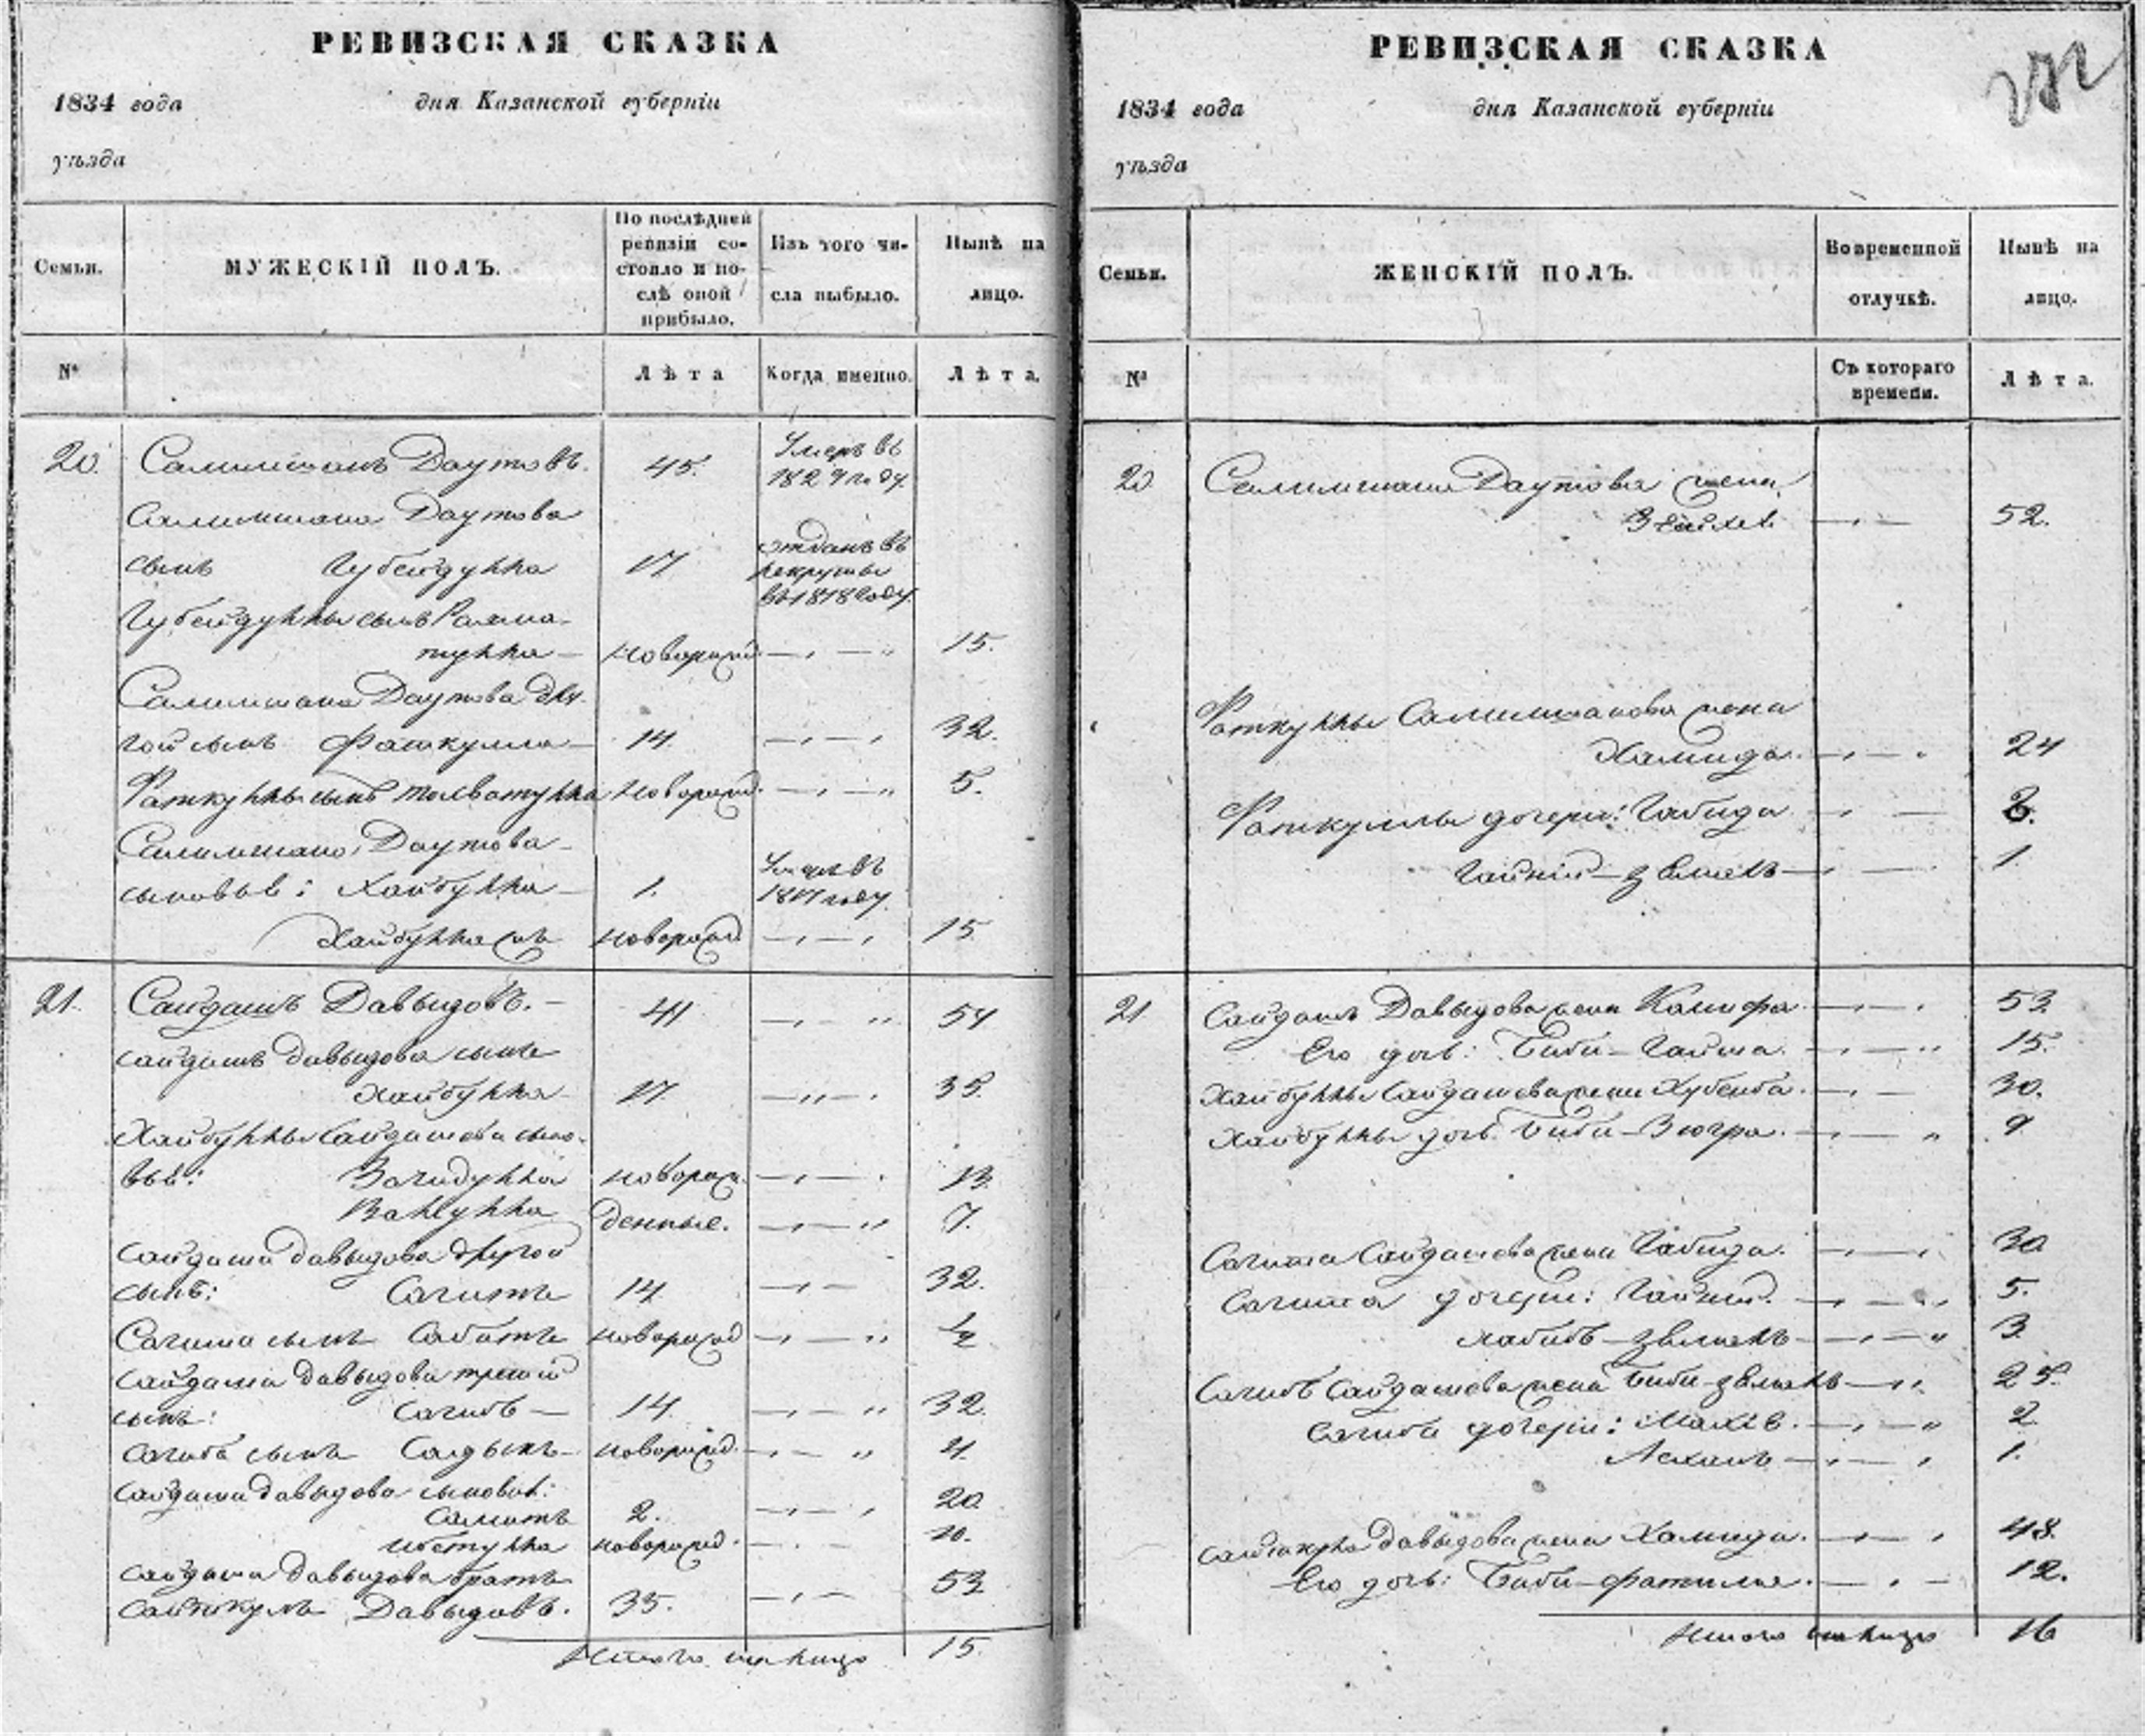 РЕВИЗСКАЯ СКАЗКА
1834 года дня Казанской губерніи
уѣзда
Семьи.
МУЖЕСКІЙ ПОЛЪ.
По послѣдней
ревизіи со-
стояло и по-
слѣ оной
прибыло.
Изъ того чи-
сла выбыло.
Нынѣ на
лицо.
№
Лѣта
Когда именно.
Лѣта.
20. Салимшанъ Даутовъ. 45. Умеръ въ
1829 году.
Салимшана Даутова
сынъ Губейдулла 17 отданъ въ
рекруты
въ 1818 году.
Губейдуллы сынъ Рахма-
тулла — новорожд — 15.
Салимшана Даутова дру-
гой сынъ Фаткулла — 14. 32.
Фаткуллы сынъ новорожд. 5.
Салимшана Даутова
сыновья: Хайбулла — 1. Умеръ въ
1817 году.
Хайбулла новорожд 15
21. Сайдашъ Давыдовъ. — 41 54
Сайдашъ Давыдова сынъ
Хайбулла 17 35.
Хайбуллы Сайдашева сыно-
вья: Загидулла новорож 13
Валеулла денные. 7.
Сайдаша Давыдова другой
сынъ: Сагитъ 14 32.
Сагита сынъ Сабитъ новорожд ½
Сайдаша Давыдова третій
сынъ: Сагибъ — 14. 32.
Сагибъ сынъ Садыкъ — новорожд. 4.
Сайдаша Давыдова сыновья:
Самитъ 2. 20
новорожд. 10.
Сайдаша Давыдова братъ
Сайткулъ Давыдовъ. 35. 53
Итого на лицо 15.
РЕВИЗСКАЯ СКАЗКА
1834 года дня Казанской губерніи
уѣзда
Семьи.
ЖЕНСКІЙ ПОЛЪ.
Во временной
отлучкѣ.
Нынѣ на
лицо.
№
Съ котораго
времени.
Лѣта.
20 Салимшана Даутова жена
52.
Фаткуллы Салимшанова жена
Хамида. 24
Фаткуллы дочери: Габида
1.
21 Сайдашъ Давыдова жена Калифа 53.
Его дочь: Биби-Гайша 15.
Хайбуллы Сайдашева жена 30.
Хайбуллы дочь Биби-Зюгра. 9
Сагита Сайдашева жена Габида. 30
Сагита дочери: 5.
3
Сагибъ Сайдашева жена 25.
Сагиба дочери: 2
1.
Сайткула Давыдова жена Хамида. 48.
Его дочь: Биби-Фатима. 12.
Итого на лицо 16